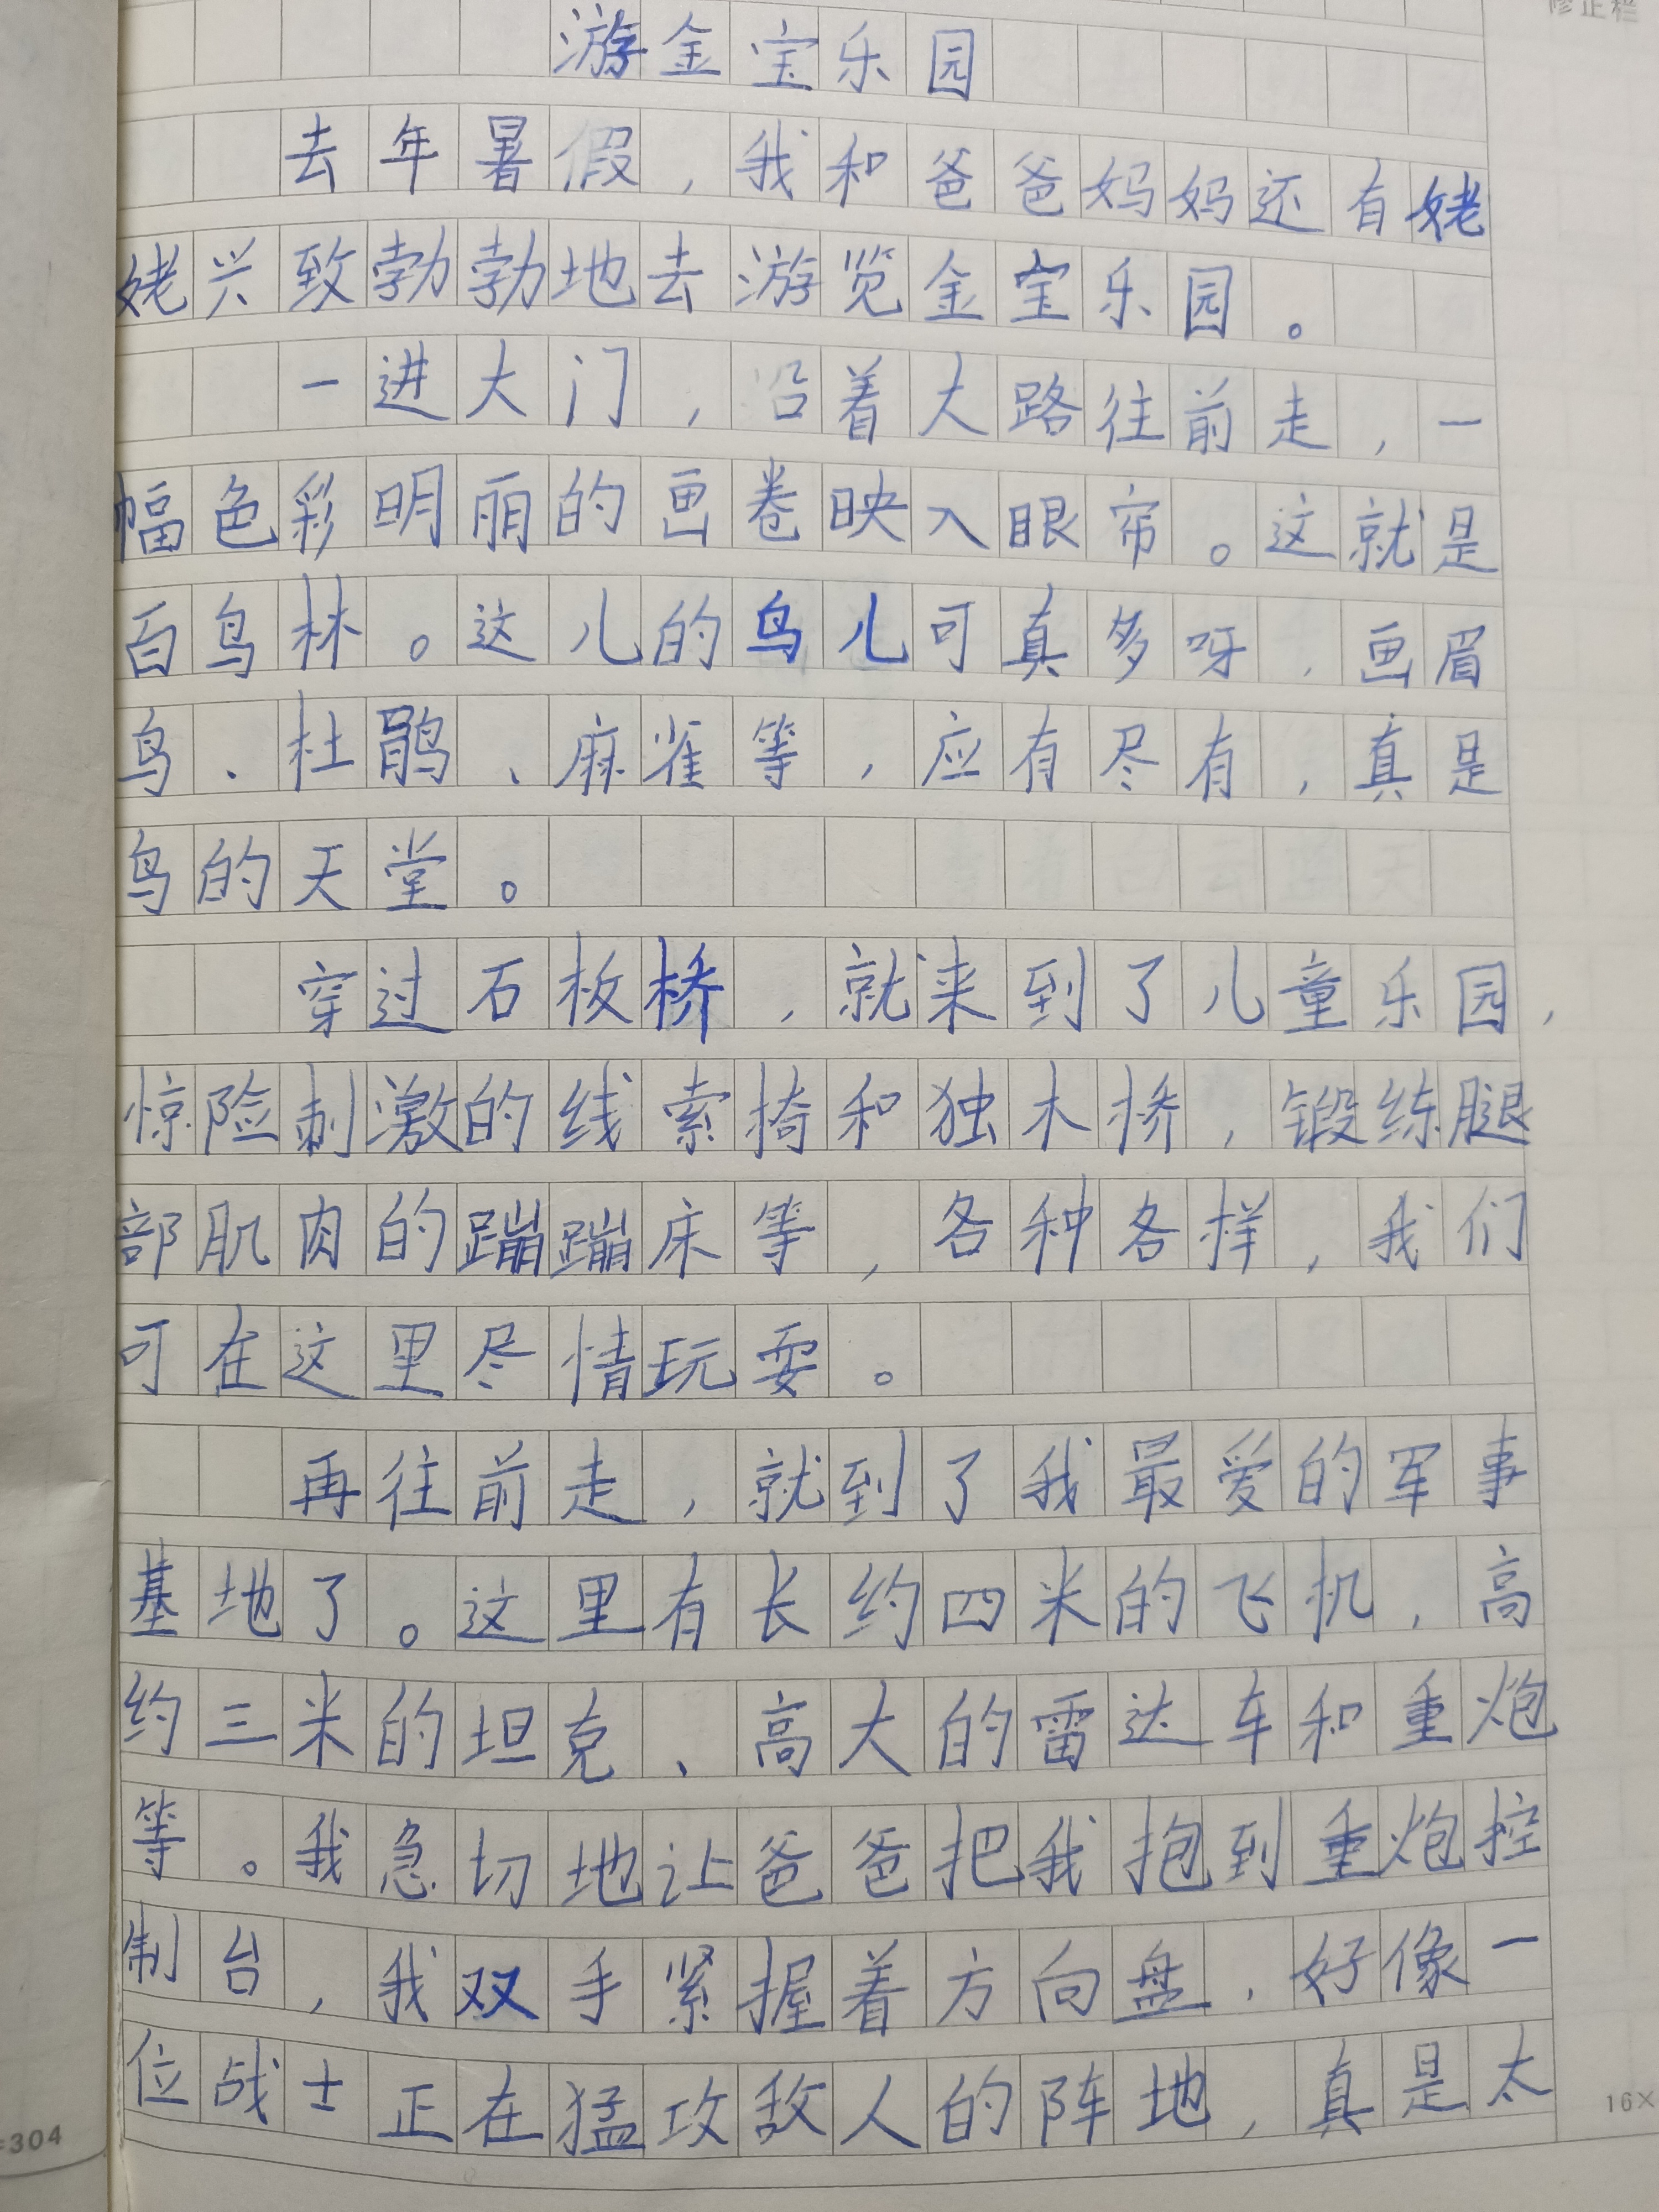 修正栏
游金宝乐园
去年暑假，我和爸爸妈妈还有姥
姥兴致勃勃地去游览金宝乐园。
一进大门，沿着大路往前走，一
幅色彩明丽的画卷映入眼帘。这就是
百鸟林。这儿的鸟儿可真多呀，画眉
鸟、杜鹃、麻雀等，应有尽有，真是
鸟的天堂。
穿过石板桥，就来到了儿童乐园，
惊险刺激的线索椅和独木桥，锻练腿
部肌肉的蹦蹦床等，各种各样，我们
可在这里尽情玩耍。
再往前走，就到了我最爱的军事
基地了。这里有长约四米的飞机，高
约三米的坦克、高大的雷达车和重炮
等。我急切地让爸爸把我抱到重炮控
制台，我双手紧握着方向盘，好像一
位战士正在猛攻敌人的阵地，真是太
16×
=304